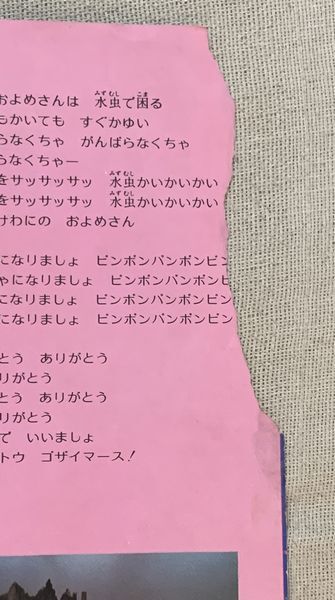 およめさんは 水虫で困る
もかいても すぐかゆい
らなくちゃ がんばらなくちゃ
らなくちゃー
をサッサッサッ 水虫かいかいかい
をサッサッサッ 水虫かいかいかい
けわにの およめさん
になりましょ ピンポンパンポンピン
ゃになりましょ ピンポンパンポンピ
になりましょ ピンポンパンポンピン
になりましょ ピンポンパンポンピン
とう ありがとう
りがとう
とう ありがとう
りがとう
で いいましょ
トウ ゴザイマース!